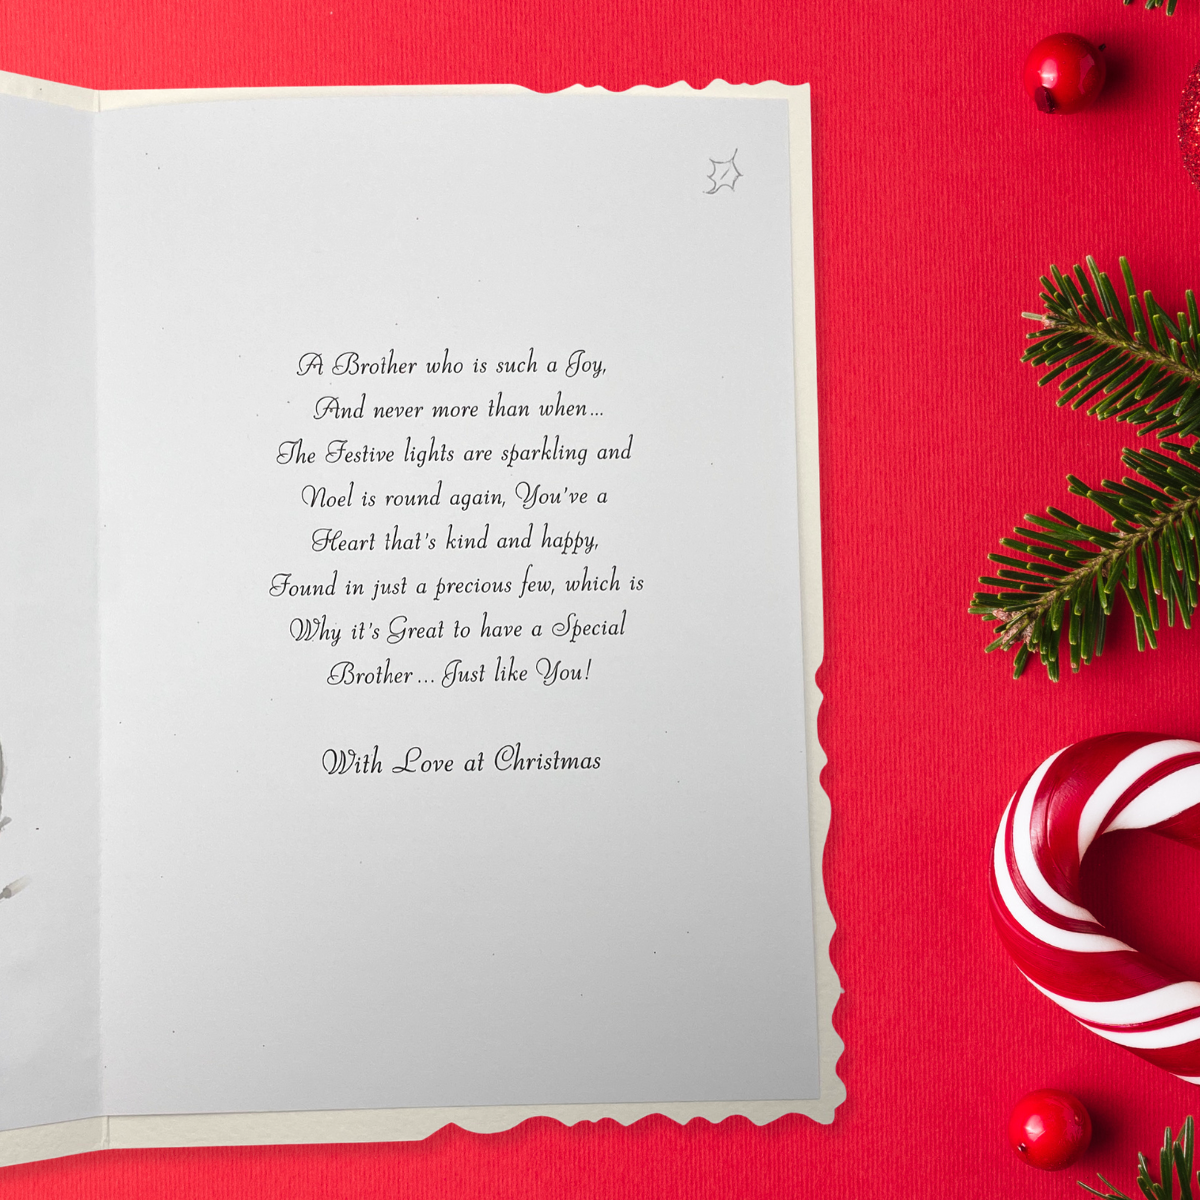 A Brother who is such a Joy,
And never more than when...
The Festive lights are sparkling and
Noel is round again, You've a
Heart that's kind and happy,
Found in just a precious few, which is
Why it's Great to have a Special
Brother... Just like You!
With Love at Christmas